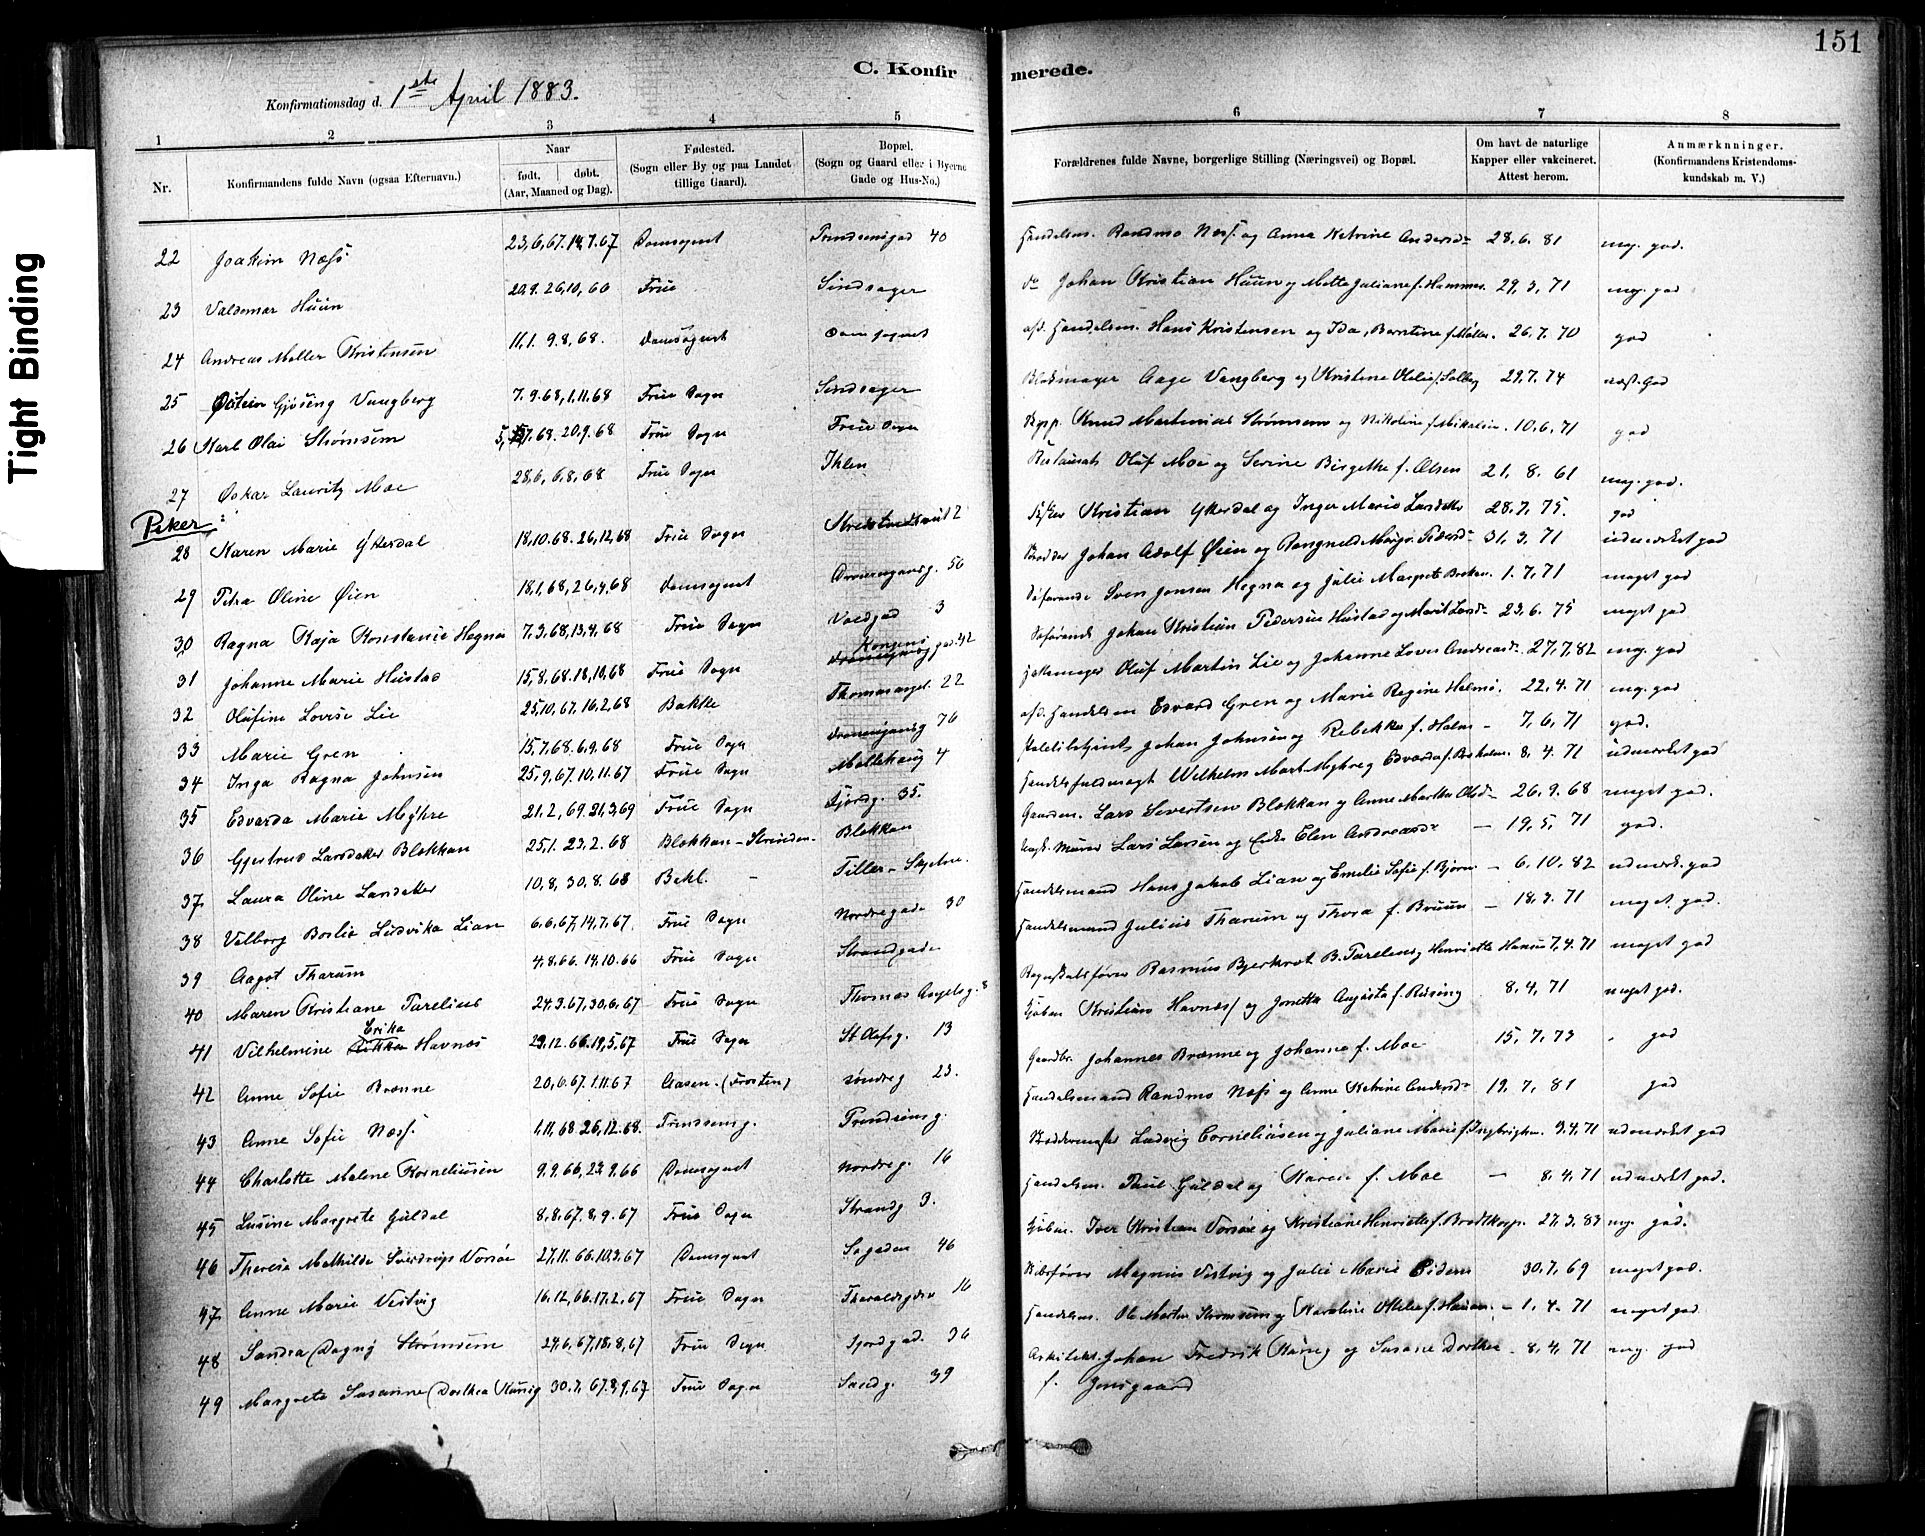 Tight Binding
151
C. Konfirmerede.
Konfirmationsdag d. 1ste April 1883.
1 2 3 4 5 6 7 8
Nr.
Konfirmandens fulde Navn (ogsaa Efternavn.)
Naar født. døbt. (Aar, Maaned og Dag).
Fødested. (Sogn eller By og paa Landet tillige Gaard).
Bopæl. (Sogn og Gaard eller i Byerne Gade og Hus-No.)
Forældrenes fulde Navne, borgerlige Stilling (Næringsvei) og Bopæl.
Om havt de naturlige Kapper eller vakcineret. Attest herom.
Anmærkninger. (Konfirmandens Kristendomskundskab m. V.)
22 Joakim Næss 23,6,67. 14,7.67 Domsognet 40 Handelsm. Randmo Næss. og Anna Katrine Andersd 28.6.81 mg. god.
23 Valdemar Huun Frue Sindsager do Johan Kristian Huun og Mette Juliane f. Hammer. 29,3,71 mg. god
24 Andreas Møller Kristensen 11,1. 9.8,68. Domsognet Domsognet afd. Handelsm. Hans Kristensen og Ida, Berntine f. Møller. 26,7.70 god
25 Øistein Gjøsing Vangberg 7.9.68,1.11.68 Frue Sogn Sindsager Aage Vangberg og Kristine 29.7.74 god
26 Karl Olai Strømsem 20.9.68 Frue Sogn Frue Sogn Knud Martinius Strømsem og Nikoline f. Mikalsen. 10.6,71 god
27 Oskar Lauritz Moe 28.6, 6.8,68 Frue Sogn Ihlen Oluf Moe og Serine Birgitte f. Olsen 21.8.61 mg. god.
Piker:
28 Karen Marie Ytterdal 18,10.68. 26,12,68 Frue Sogn Kristian Ytterdal og Inger Marie 28.7,75. god
29 Petra Oline Øien 18,1,68,26,4,68 Domsognet 56 Johan Adolf Øien og 31,3,71 udmærket god
30 Ragna Kaja Konstanse Hegna 7.3.68,13,4,68 Frue Sogn 3 Søfarende Sven Jensen Hegna og Julie Margrete 1.7,71 meget god
31 Johanne Marie Hustad 15,8,68.18,10,68 Frue Sogn Kongens gad. 42 Søfarende Johan Kristian Pedersen Hustad og Marit 23,6.75 meget god
32 Olufine Lovise Lie 25,10,67,16,2,68 Bakke Thomasangel. 22 Oluf Martin Lie og Johanne Lovise Andreasd 27,7.82 mg. god
33 Marie Gren 15,7,68.6,9.68 Frue Sogn 76 afd. Handelsm Edvard Gren og Marie Regine 22,4.71 mg. god
34 Inga Ragna Johnsen 25,9,67.10,11.67 Frue Sogn Møllebakg 4 Johan Johnsen og Rebekka f. Holm - 7,6,71 god.
35 Edvarda Marie Myhre 21.2,69.21,3,69 Frue Sogn Fjordg. 35. Wilhelm Mart. Myhre og Edvarda 8.4.71 udmærket god
36 Gjertrud Larsdatter Blekkan 25,1. 23.2.68 Blekkan - Strinden Blekkan Gaardm. Lars Sivertsen Blekkan og Anne Martha Olsd - 26.9.68 meget god.
37. Laura Oline Larsdatter 10,8,30,8.68 Bakl. Tiller - Lars Larsen og Elen Andreasd - 19,5,71 god.
38 Valborg Ludvika Lian 6,6,67,14,7,67. Frue Sogn Nordregade 30 Handelsmand Hans Jakob Lian og Emelie Sofie f. Bjørn - 6,10,82 udmærk. god
39 Aagot Tharum 4,8.66.14,10.66 Frue Sogn Strandgade Handelsmand Julius Tharum og Thora f. Bruun - 18,3.71 meget god.
40 Maren Kristiane Parelius 24,3.67,30,6,67 Frue Sogn Thomas Angelsg. 8 Regnskabsfører Rasmus Bjerkrot B. Parelius og Henriette 7,4.71 meget god
41 Vilhelmine Erika Havnæs 29.12.66.19,5,67 Frue Sogn St Olafsg. 13 Kristian Havnæs og Jonetta Augusta f. Rusing 8,4,71 meget god.
42 Anne Sofie Brænne 20,6.67.1.11.67 Aasen. (Frosten) Søndreg 23. Gaardbr. Johannes Brænne og Johanna f. Moe 15,7,73 god
43 Anne Sofie Næss. 1,11,68 26,12.68. Prindsensg. Prindsensg. Handelsmand Randmo Næss og Anne Katrine Andersd 19,7,81 god
44 Charlotte Malene Korneliusen 9.9.66,23.9.66 Domsognet Nordreg. 16 Ludvig Corneliusen og Juliane Marie f. 9.4.71 udmærket god
45 Lusine Margrete Guldal 8,8.67.8,9.67 Frue Sogn Strandg 3. Handelsm. Paul Guldal og Karen f. Moe - 8,4,71 udmærket god.
46 Therese Mathilde Sverdrup Vorsøe 27,11.66.10,3,67 Domsognet 46 Iver Kristian Vorsøe og Kristiane Henriette f. Brodtkorp. 27.3.83 mg. god.
47. Anne Marie Vestvig 16,12,66,17.2,67 Frue Sogn 16 Magnus Vestvig og Julie Marie 30.7,69 meget god.
48 Sandra Dagny Strømsem 24,6,67,18,8,67 Frue Sogn Fjordgad. 36 Handelsm. Ole Martin Strømsem og Karoline - 1.4.71 meget god
49 Margrete Susanne Dorthea Kunig 30.7,67.8,9.67 Frue Sogn Sandg. 39 Arkitekt. Johan Fredrik Kunig og Susane Dorthea f. Jensgaard - 8,4,71 mg. god